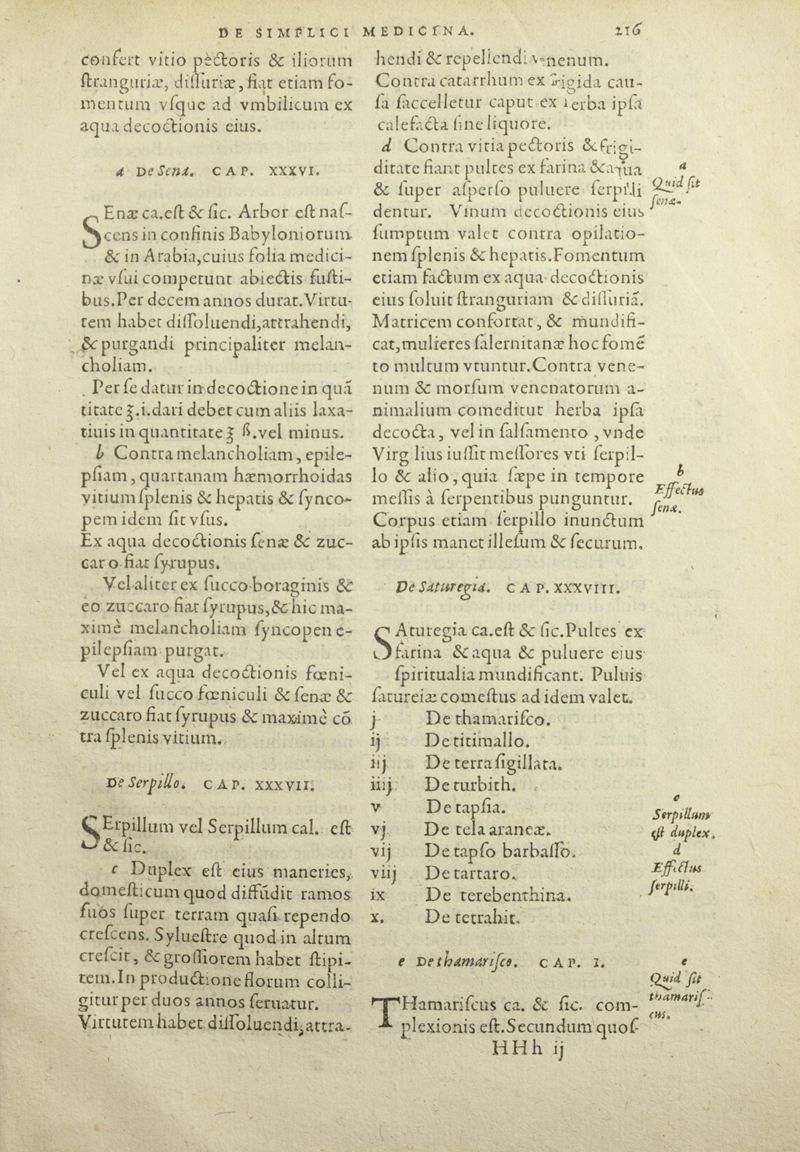 DE SIMPLICI MEDICINA. 216
confert vitio pectoris & iliorum
ſtranguriæ, diſſuriæ, fiat etiam fo-
mentum vſque ad vmbilicum ex
aqua decoctionis eius.
a De Sena. CAP. XXXVI.
SEnæ ca. eſt & ſic. Arbor eſt naſ-
cens in confinis Babyloniorum
& in Arabia, cuius folia medici-
næ vſui competunt abiectis fuſti-
bus. Per decem annos durat. Virtu-
tem habet diſſoluendi, attrahendi,
& purgandi principaliter melan-
choliam.
Per ſe datur in decoctione in quã
titate ℥.i. dari debet cum aliis laxa-
tiuis in quantitate ℥ ß. vel minus.
b Contra melancholiam, epile-
pſiam, quartanam hæmorrhoidas
vitium ſplenis & hepatis & ſynco-
pem idem fit vſus.
Ex aqua decoctionis ſenæ & zuc-
caro fiat ſyrupus.
Vel aliter ex ſucco boraginis &
eo zuccaro fiat ſyrupus, & hic ma-
ximè melancholiam ſyncopen e-
pilepſiam purgat.
Vel ex aqua decoctionis fœni-
culi vel ſucco fœniculi & ſenæ &
zuccaro fiat ſyrupus & maximè cõ
tra ſplenis vitium.
De Serpillo. CAP. XXXVII.
SErpillum vel Serpillum cal. eſt
& ſic.
c Duplex eſt eius maneries,
domeſticum quod diffũdit ramos
ſuos ſuper terram quaſi rependo
creſcens. Sylueſtre quod in altum
creſcit, & groſſiorem habet ſtipi-
tem. In productione florum colli-
gitur per duos annos ſeruatur.
Virtutem habet diſſoluendi, attra-
hendi & repellendi venenum.
Contra catarrhum ex frigida cau-
ſa ſaccelletur caput ex herba ipſa
calefacta ſine liquore.
d Contra vitia pectoris & frigi-
ditate fiant pultes ex farina & aqua
& ſuper aſperſo puluere ſerpilli
dentur. Vinum decoctionis eius
ſumptum valet contra opilatio-
nem ſplenis & hepatis. Fomentum
etiam factum ex aqua decoctionis
eius ſoluit ſtranguriam & diſſuriã.
Matricem confortat, & mundifi-
cat, mulieres ſalernitanæ hoc fomẽ
to multum vtuntur. Contra vene-
num & morſum venenatorum a-
nimalium comeditut herba ipſa
decocta, vel in ſalſamento, vnde
Virg lius iuſſit meſſores vti ſerpil-
lo & alio, quia ſæpe in tempore
meſſis à ſerpentibus punguntur.
Corpus etiam ſerpillo inunctum
ab ipſis manet illeſum & ſecurum.
De Saturegia. CAP. XXXVIII.
SAturegia ca. eſt & ſic. Pultes ex
farina & aqua & puluere eius
ſpiritualia mundificant. Puluis
ſatureiæ comeſtus ad idem valet.
j De thamariſco.
ij De titimallo.
iij De terra ſigillata.
iiij De turbith.
v De tapſia.
vj De tela araneæ.
vij De tapſo barbaſſo.
viij De tartaro.
ix De terebenthina.
x. De tetrahit.
e De thamariſco. CAP. I.
THamariſcus ca. & ſic. com-
plexionis eſt. Secundum quoſ
HHh ij
a
Quid ſit
ſena.
b
Effectus
ſenæ.
c
Serpillum
eſt duplex.
d
Effectus
ſerpilli.
e
Quid ſit
thamariſ-
cus.